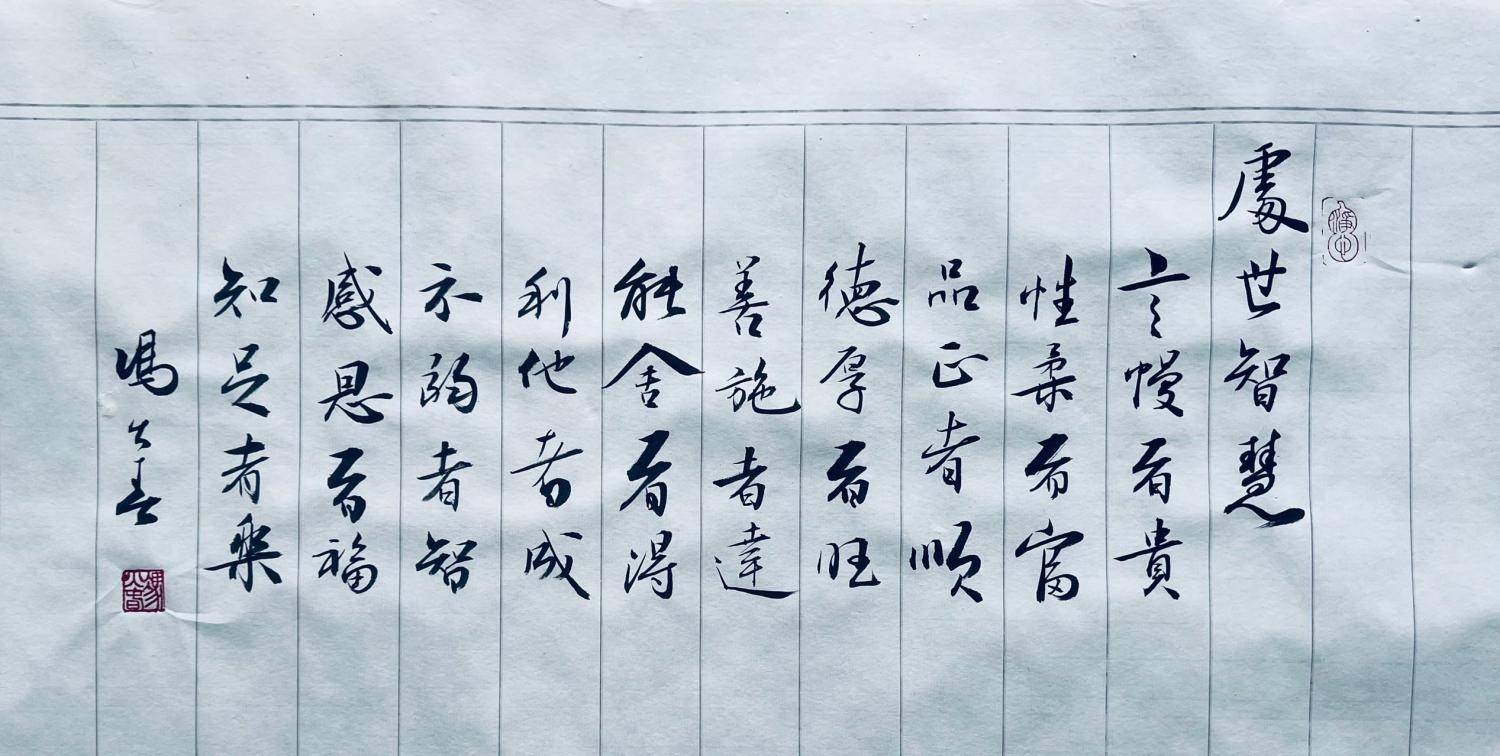 處世智慧
言慢者貴
性柔者富
品正者順
德厚者旺
善施者達
能舍者得
利他者成
示弱者智
感恩者福
知足者樂
馮 春